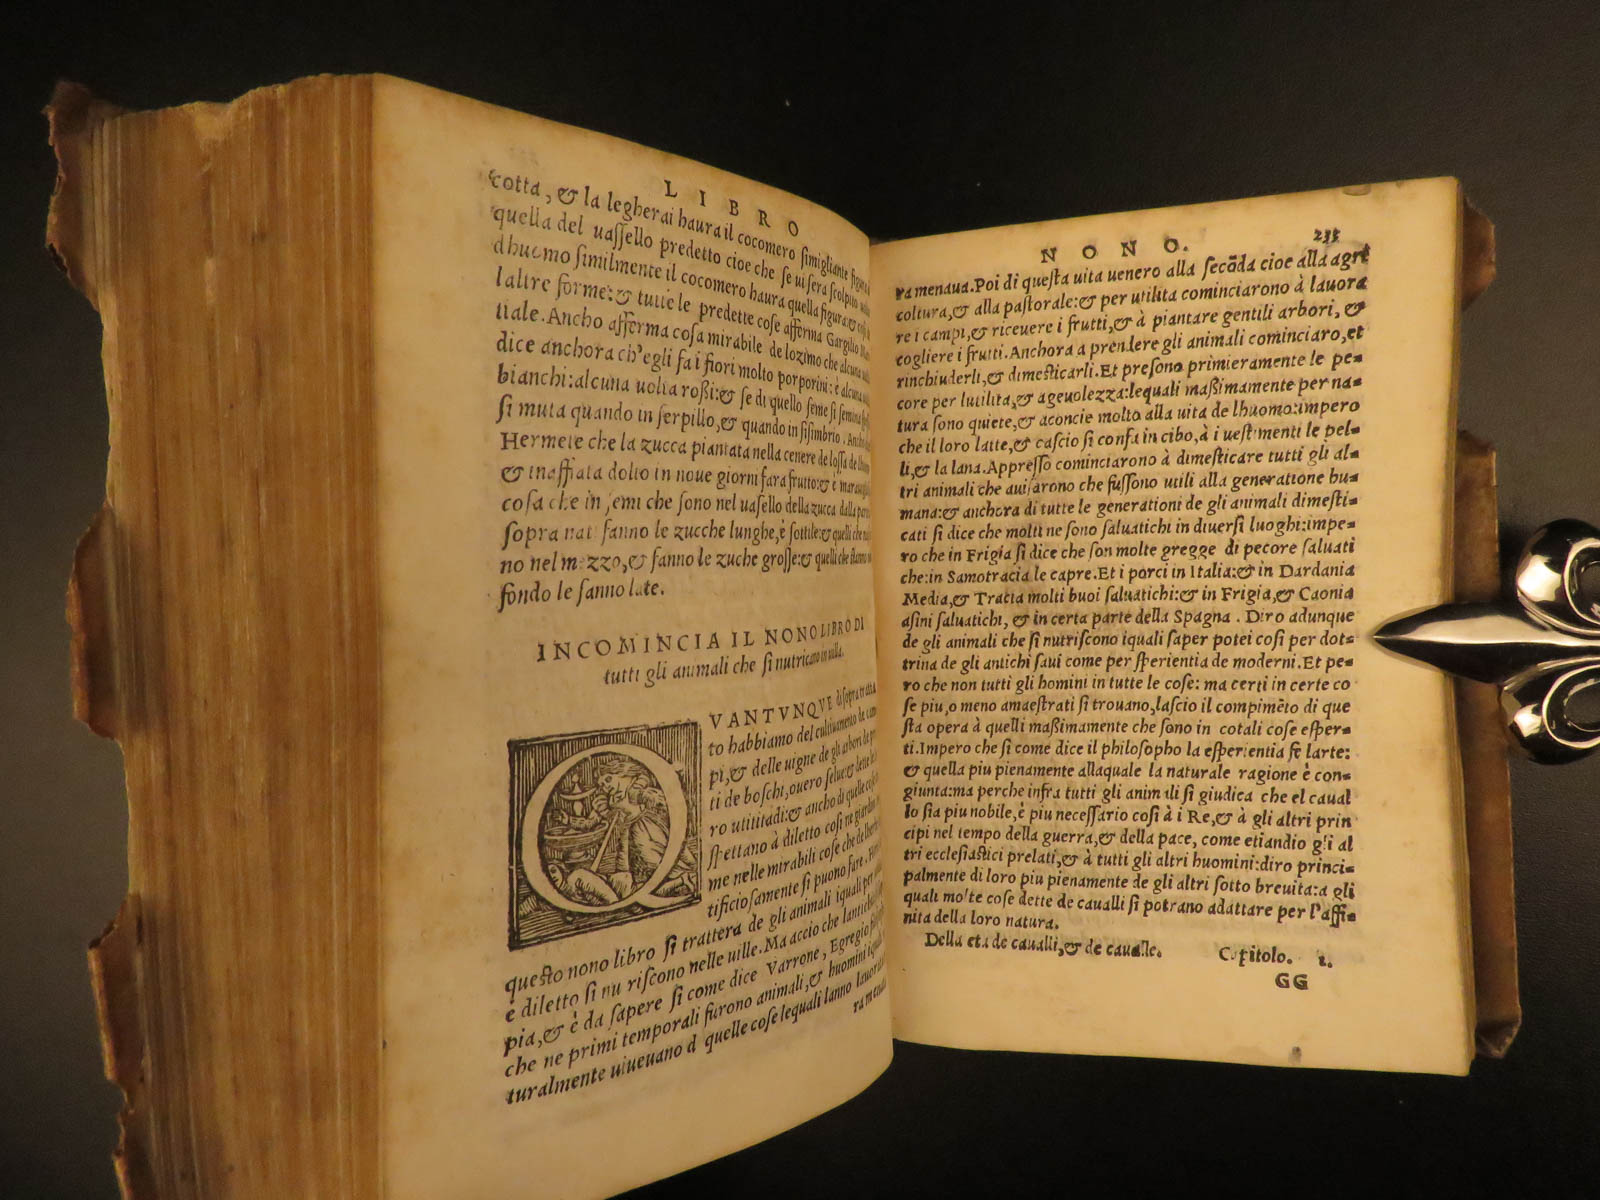 LIBRO
cotta, & la legherai haura il cocomero simigliante
quella del uassello predetto cioe che se ui sera scolpito
dhuomo similmente il cocomero haura quella figura:&
laltre forme:& tutte le predette cose afferma Gargilio
tiale. Ancho afferma cosa mirabile de lozimo che alcuna
dice anchora ch'egli fa i fiori molto porporini: è alcuna
bianchi: alcuna uolta roßi:& se di quello seme si semina
si muta quando in serpillo,& quando in sisimbrio. Ancho
Hermete che la zucca piantata nella cenere de lossa de lhuo
& inaffiata dolio in noue giorni fara frutto:& è
cosa che in semi che sono nel uasello della zucca dalla
sopra nati fanno le zucche lunghe, è sottile:& quelli che
no nel mezzo,& fanno le zuche grosse:& quelli che stanno
fondo le fanno late.
INCOMINCIA IL NONO LIBRO DI
tutti gli animali che si nutricano in uilla.
QVANTVNQVE disopra tratta
to habbiamo del cultiuamento de cam
pi,& delle uigne de gli arbori
ti de boschi, ouero selue:&
ro utilitadi:& ancho di quelle
spettano à diletto cosi ne giardini
me nelle mirabili cose che
tificiosamente si puono fare.
questo nono libro si trattera de gli animali iquali per
è diletto si nutriscono nelle uille. Ma accio che lantich
pia,& è da sapere si come dice Varrone, Egregio
che ne primi temporali furono animali,& huomini iquali
turalmente uiueuano d quelle cose lequali lanno lauora
ra mena
NONO. 233
ra menaua. Poi di questa uita uenero alla secōda cioe alla agri
coltura,& alla pastorale:& per utilita cominciarono à lauora
re i campi,& riceuere i frutti,& à piantare gentili arbori, &
cogliere i frutti. Anchora a prendere gli animali cominciaro, et
rinchiuderli,& dimesticarli. Et presono primieramente le pe=
core per lutilita,& ageuolezza: lequali maßimamente per na=
tura sono quiete,& aconcie molto alla uita de lhuomo: impero
che il loro latte,& cascio si confa in cibo, à i uestimenti le pel=
li,& la lana. Appresso cominciarono à dimesticare tutti gli al=
tri animali che auisarono che fussono utili alla generatione hu=
mana:& anchora di tutte le generationi de gli animali dimesti=
cati si dice che molti ne sono saluatichi in diuersi luoghi: impe=
ro che in Frigia si dice che son molte gregge di pecore saluati
che: in Samotracia le capre. Et i porci in Italia:& in Dardania
Media,& Tracia molti buoi saluatichi:& in Frigia,& Caonia
asini saluatichi, & in certa parte della Spagna. Diro adunque
de gli animali che si nutriscono iquali saper potei cosi per dot=
trina de gli antichi saui come per sperientia de moderni. Et pe=
ro che non tutti gli homini in tutte le cose: ma certi in certe co
se piu, o meno amaestrati si trouano, lascio il compimēto di que
sta opera à quelli maßimamente che sono in cotali cose esper=
ti. Impero che si come dice il philosopho la esperientia fe larte:
& quella piu pienamente allaquale la naturale ragione è con=
giunta: ma perche infra tutti gli animali si giudica che el caual
lo sia piu nobile, è piu necessario cosi à i Re,& à gli altri prin
cipi nel tempo della guerra,& della pace, come etiandio gli al
tri ecclesiastici prelati,& à tutti gli altri huomini: diro princi=
palmente di loro piu pienamente de gli altri sotto breuita: a gli
quali molte cose dette de caualli si potrano adattare per l'affi=
nita della loro natura.
Della eta de caualli,& de caualle. Capitolo. 1.
GG